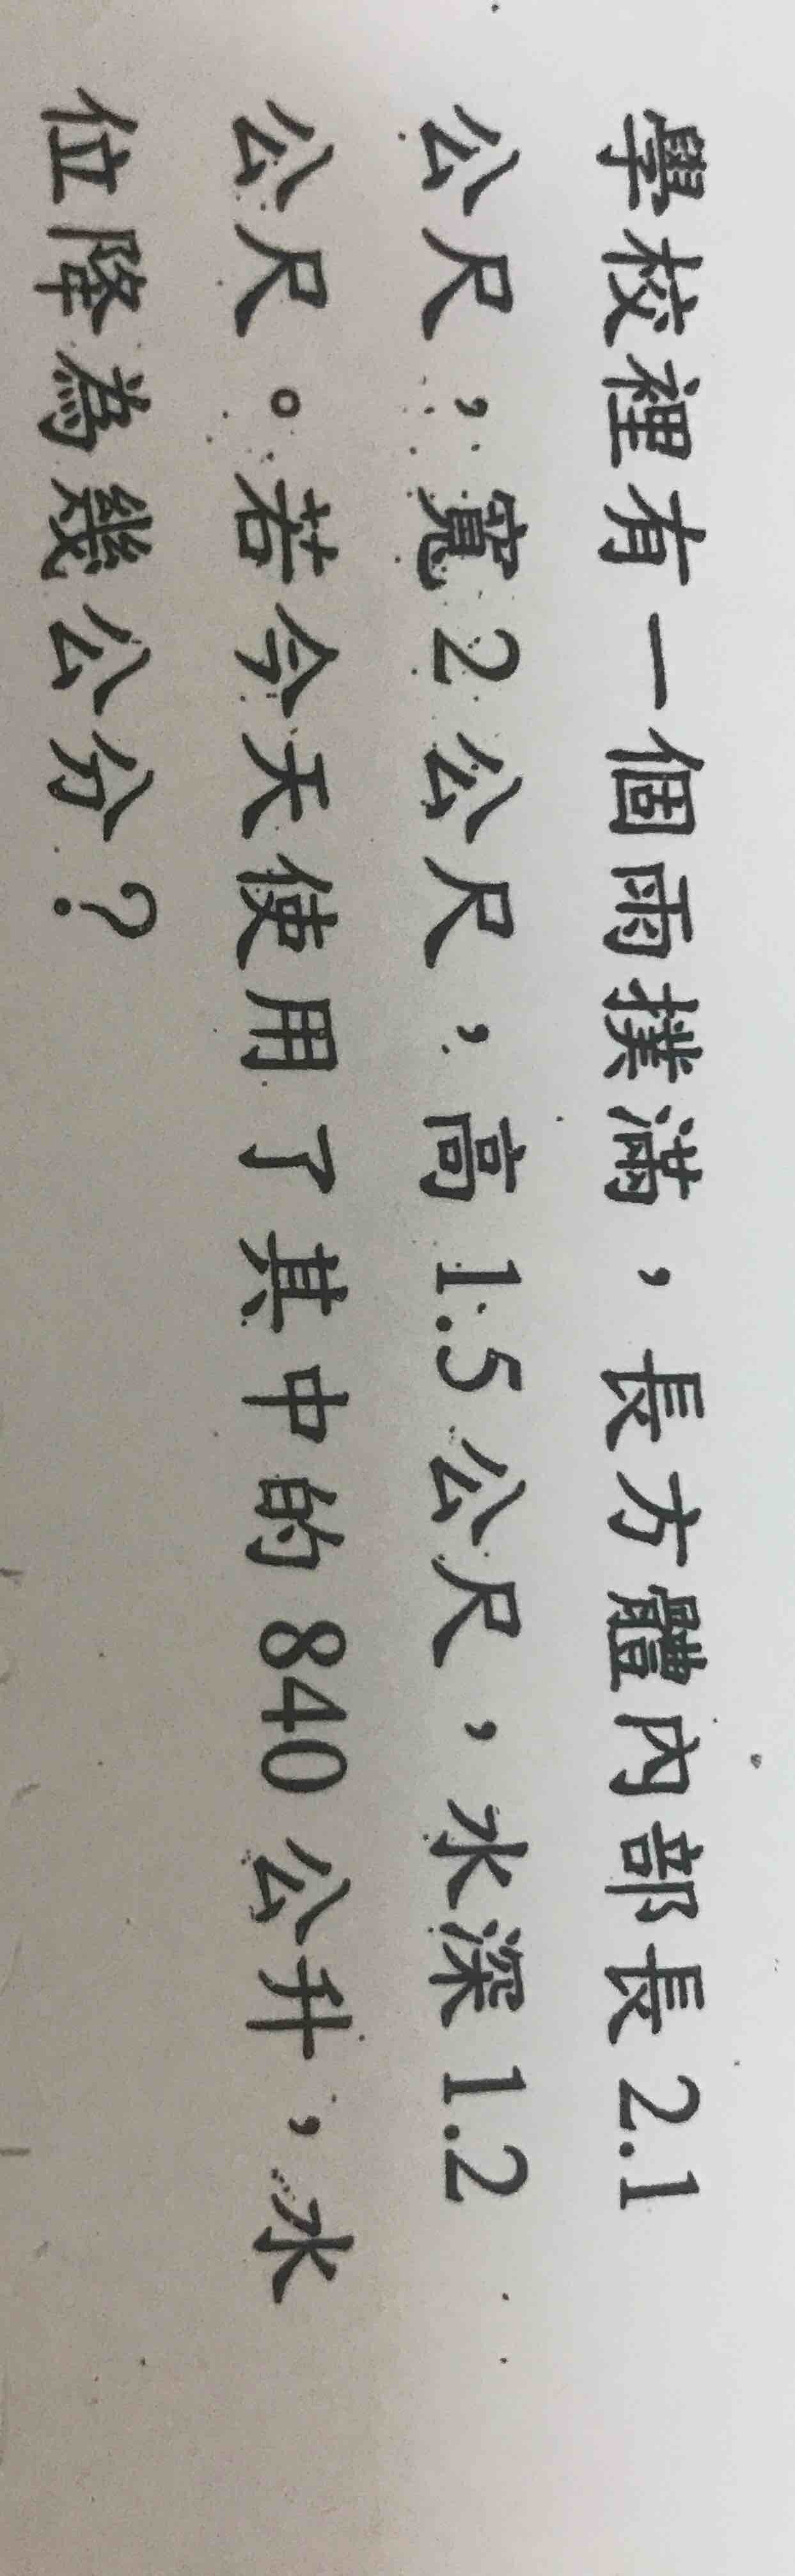 學校裡有一個雨撲滿，長方體內部長2.1
公尺，寬2公尺，高1.5公尺，水深1.2
公尺。若今天使用了其中的840公升，水
位降為幾公分？